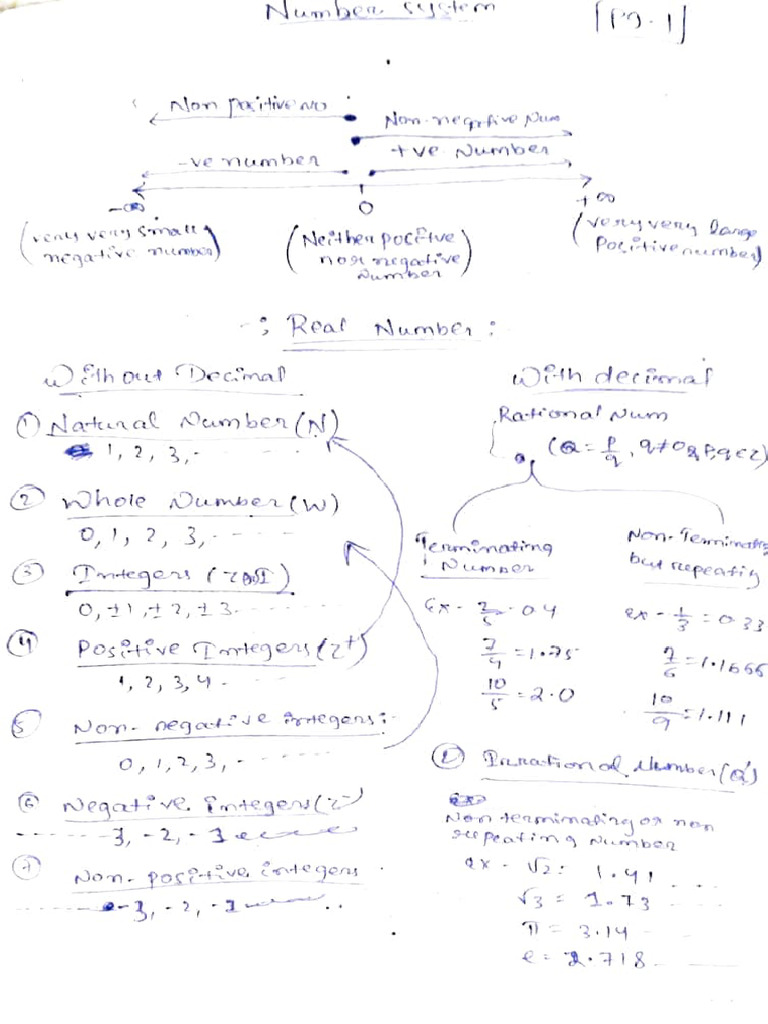 Number system
[Pg. 1]
Non positive no
Non-negative Num
-ve number
+ve Number
-∞
0
+∞
(very very small negative number)
(Neither positive nor negative Number)
(very very large Positive number)
-: Real Number:
Without Decimal
① Natural Number (N)
1, 2, 3, - - - -
② Whole Number (W)
0, 1, 2, 3, - - - -
③ Integers (Z or I)
0, ±1, ±2, ±3 - - - -
④ Positive Integers (Z+)
1, 2, 3, 4 - - - -
⑤ Non-negative integers:-
0, 1, 2, 3, - - - -
⑥ Negative integers (Z-)
- - - - -3, -2, -1
⑦ Non-positive integers
- - - - -3, -2, -1
With decimal
Rational Num
(Q = p/q, q≠0 & p,q ∈ Z)
Terminating Number
Ex - 2/5 - 0.4
7/4 = 1.75
10/5 = 2.0
Non-Terminating
but repeatig
ex - 1/3 = 0.33
7/6 = 1.1666
10/9 = 1.111
② Irrational Number (Q')
Non terminating or non
repeating Number
ex - √2 = 1.41 . . .
√3 = 1.73 . . .
π = 3.14 - -
e = 2.718 - - -